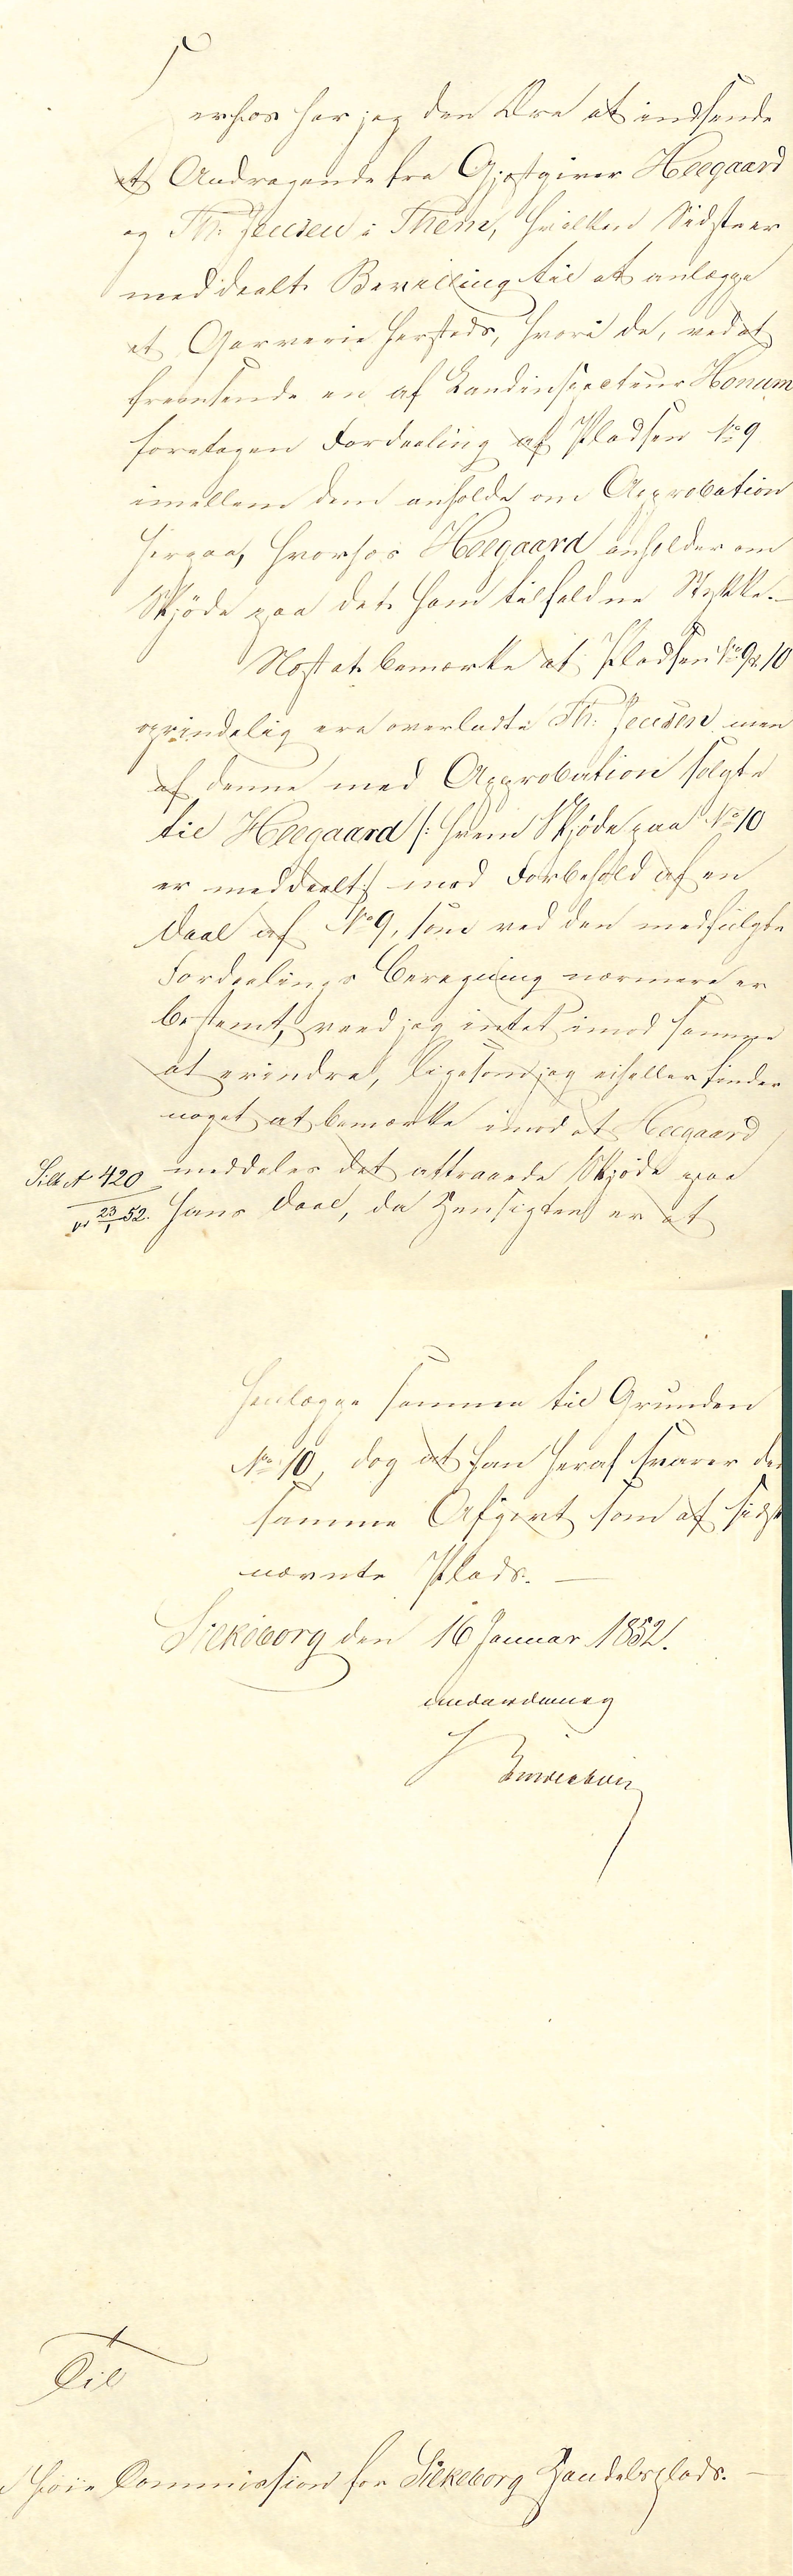 Hierhos har jeg den Ære at indsende
et Andragende fra Gjæstgiver Heegaard
og Th: Jensen i Them, hvilken Sidste er
meddeelt Bevilling til at anlægge
et Garverie hersteds, hvori de, ved at
fremsende en af Landinspecteur Honum
foretagen Fordeeling af Pladsen No 9
imellem dem anholde om Approbation
herpaa, hvorhos Heegaard anholder om
Skjöde paa det ham tilfaldne Stykke.—
Næst at bemærke at Pladsen No 9 & 10
oprindelig ere overladte Th: Jensen men
af denne med Approbation solgte
til Heegaard /: hvem Skjöde paa No 10
er meddeelt :/ med Forbehold af en
Deel af No 9, som ved den medfulgte
Fordeelings Beregning nærmere er
bestemt, veed jeg intet imod samme
at erindre, ligesom jeg eiheller finder
noget at bemærke imod at Heegaard
meddeles det attraaede Skjöde paa
Silk A 420
23/1 52.
hans Deel, da Hensigten er at
henlægge samme til Grunden
No 10, dog at han heraf svarer den
samme Afgivt som af sidst
nævnte Plads.—
Silkeborg den 16 Januar 1852.
underdanig
Til
Höie Commission for Silkeborg Handelsplads.—